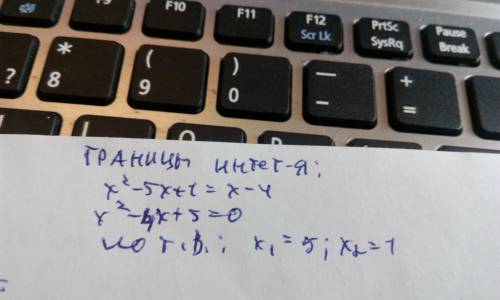 F10
F11
F12
Scr Lk
PrtSc
SysRq
Pause
Break
?
*
8
(
9
)
0
—
-
+
=
границы интег-я:
x²-5x+1=x-4
x²-6x+5=0
по т.в.; x₁=5; x₂=1